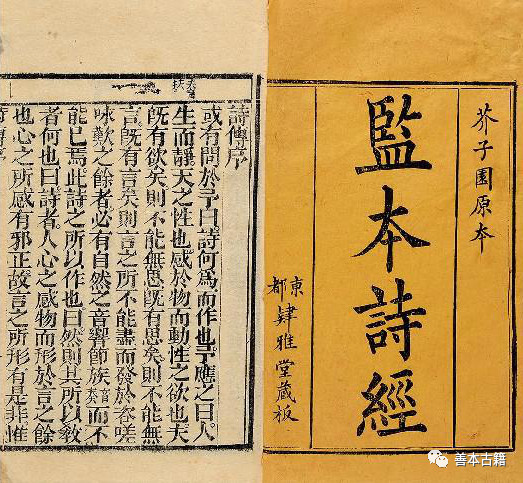 芥子園原本
監本詩經
東都肄雅堂藏板
詩傳序
或有問於予曰詩何為而作也予應之曰人
生而靜天之性也感於物而動性之欲也夫
既有欲矣則不能無思既有思矣則不能無
言既有言矣則言之所不能盡而發於咨嗟
咏歎之餘者必有自然之音響節族音奏而不
能已焉此詩之所以作也曰然則其所以教
者何也曰詩者人心之感物而形於言之餘
也心之所感有邪正故言之所形有是非惟
善本古籍